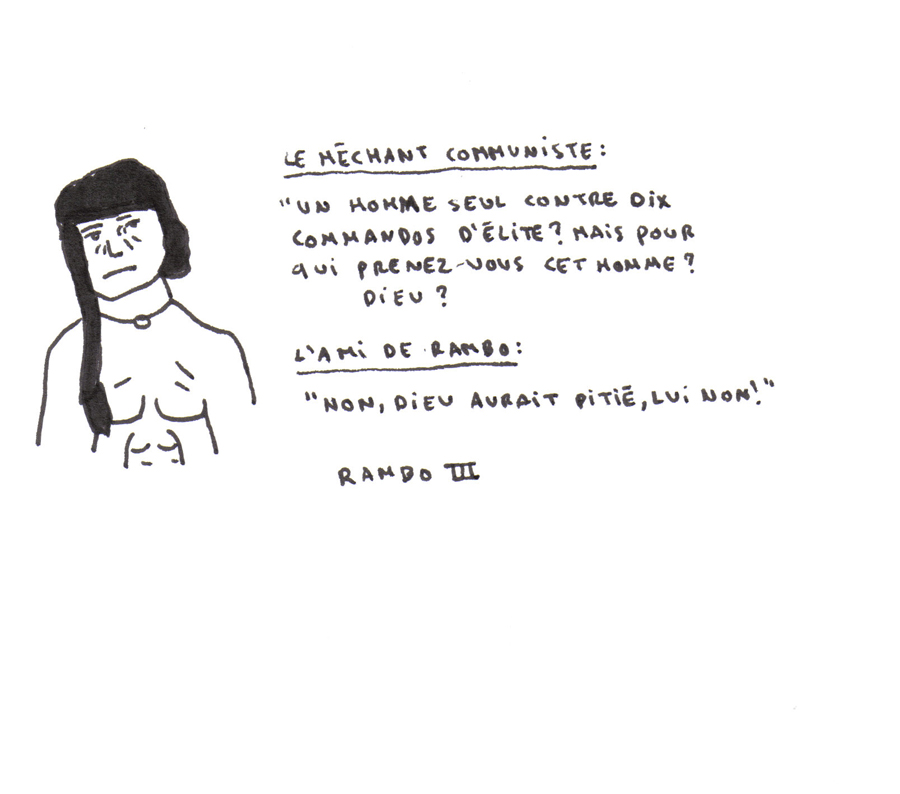 LE MÉCHANT COMMUNISTE:
"UN HOMME SEUL CONTRE DIX
COMMANDOS D'ÉLITE? MAIS POUR
QUI PRENEZ-VOUS CET HOMME?
DIEU?
L'AMI DE RAMBO:
"NON, DIEU AURAIT PITIÉ, LUI NON!"
RAMBO III